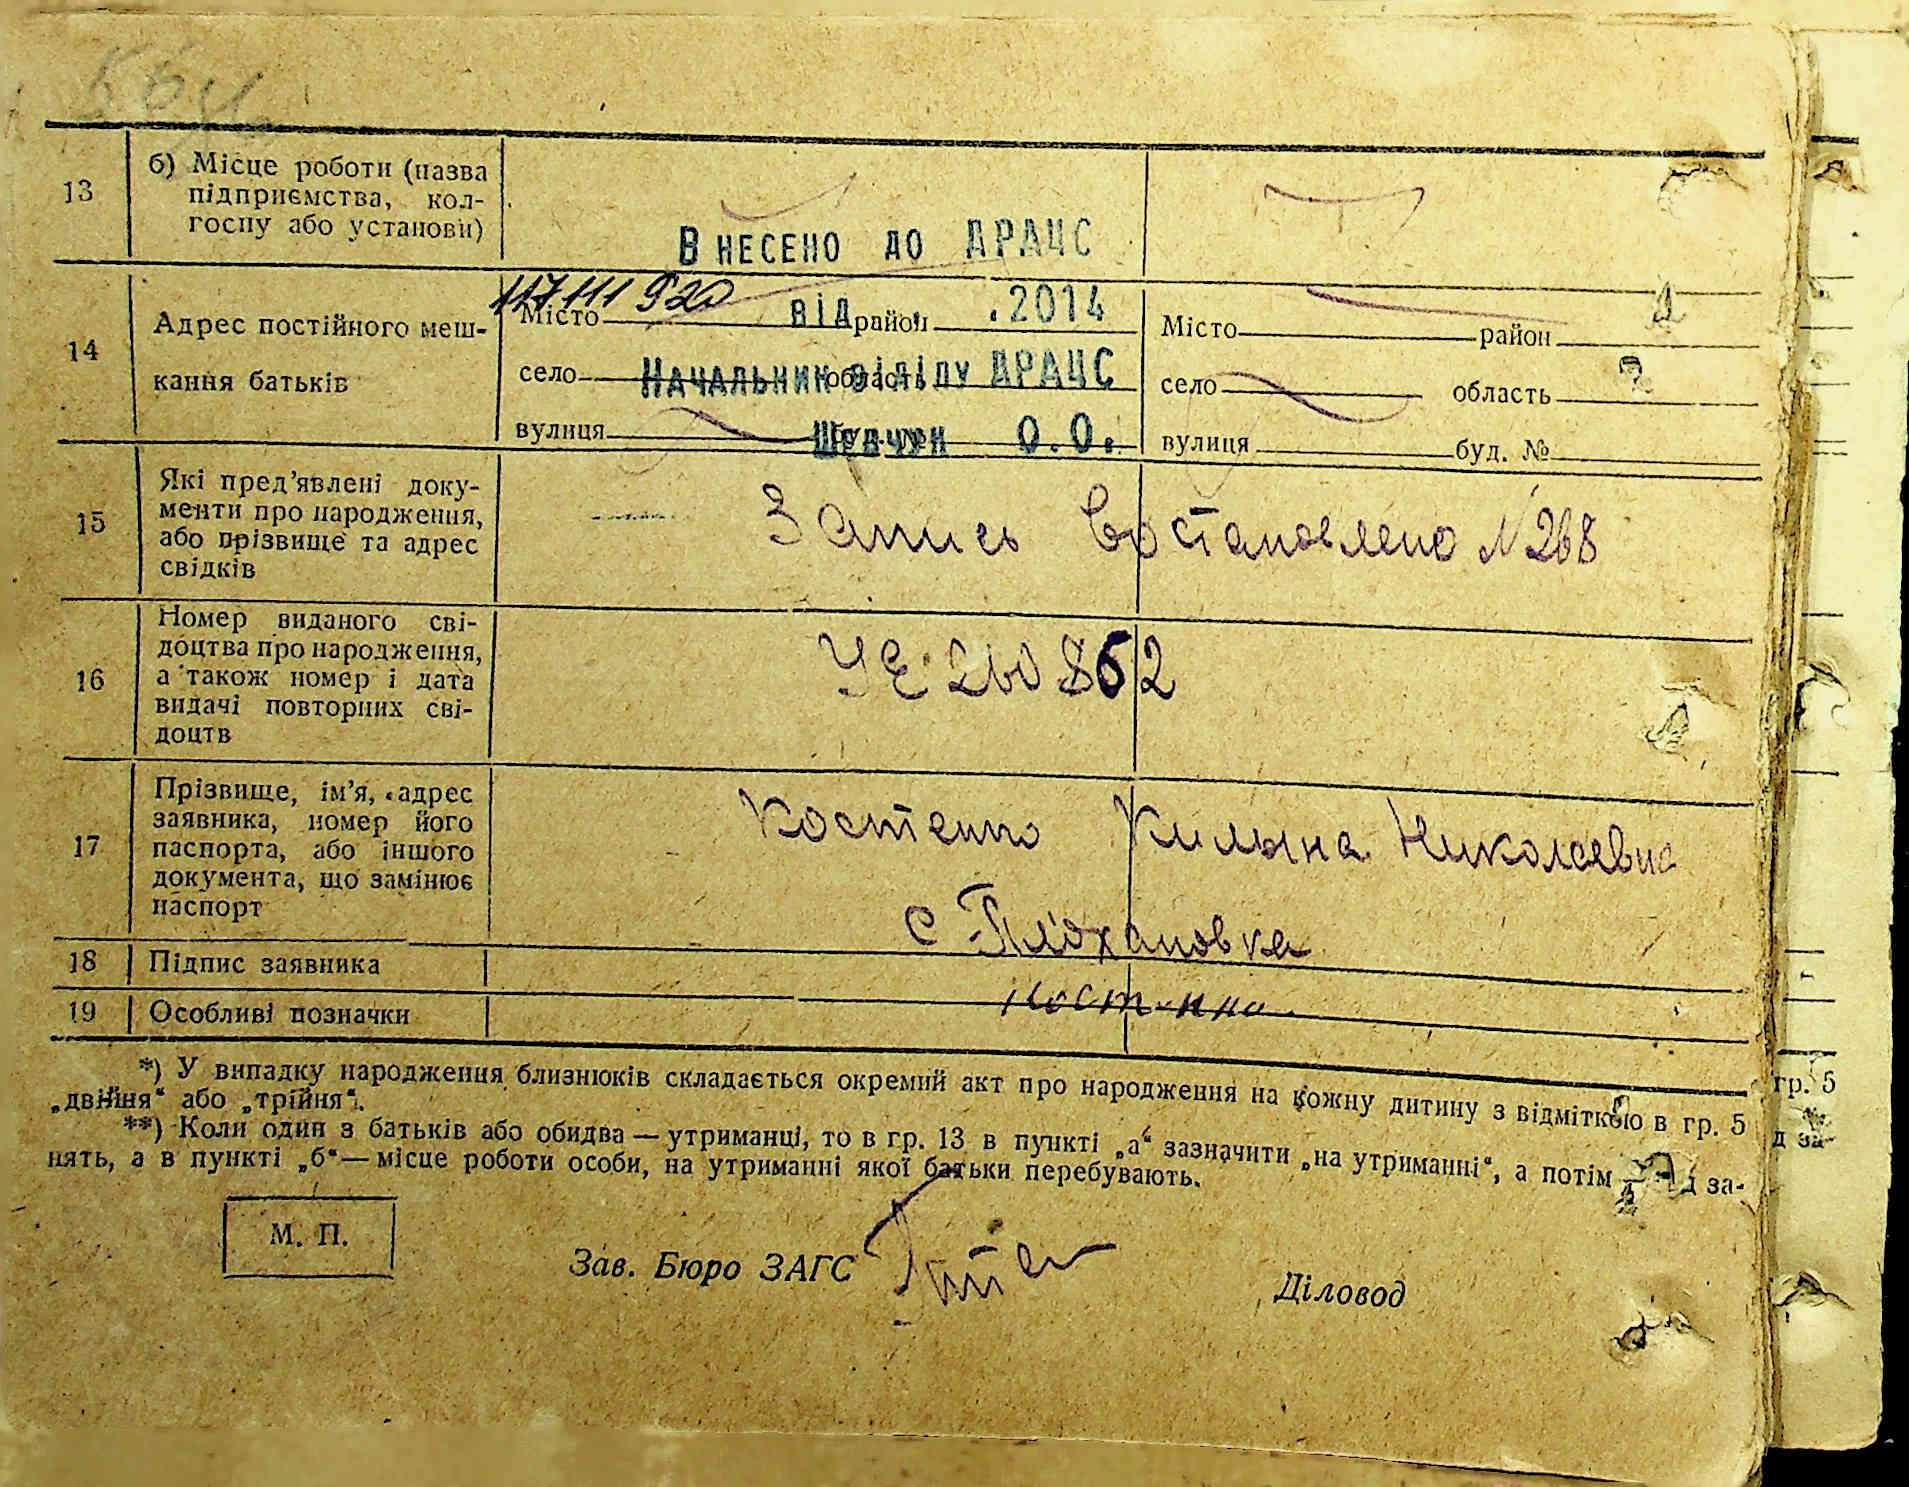 13
б) Місце роботи (назва
підприємства, кол-
госпу або установи)
ВНЕСЕНО ДО ДРАЦС
117111920
14
Адрес постійного меш-
кання батьків
Місто район
від .2014
село область
Начальник відділу ДРАЦС
вулиця
О.О.
Місто район
село область
вулиця буд. №
15
Які пред'явлені доку-
менти про народження,
або прізвище та адрес
свідків
Запись востановлено №268
16
Номер виданого сві-
доцтва про народження,
а також номер і дата
видачі повторних сві-
доцтв
УЕ 260852
17
Прізвище, ім'я, адрес
заявника, номер його
паспорта, або іншого
документа, що замінює
паспорт
Костенко Килына Николаевна
с Плохановка
18
Підпис заявника
19
Особливі позначки
*) У випадку народження близнюків складається окремий акт про народження на кожну дитину з відміткою в гр. 5
„двійня“ або „трійня“.
**) Коли один з батьків або обидва — утриманці, то в гр. 13 в пункті „а“ зазначити „на утриманні“, а потім за-
нять, а в пункті „б“ — місце роботи особи, на утриманні якої батьки перебувають.
М. П.
Зав. Бюро ЗАГС
Діловод
гр. 5
д за-